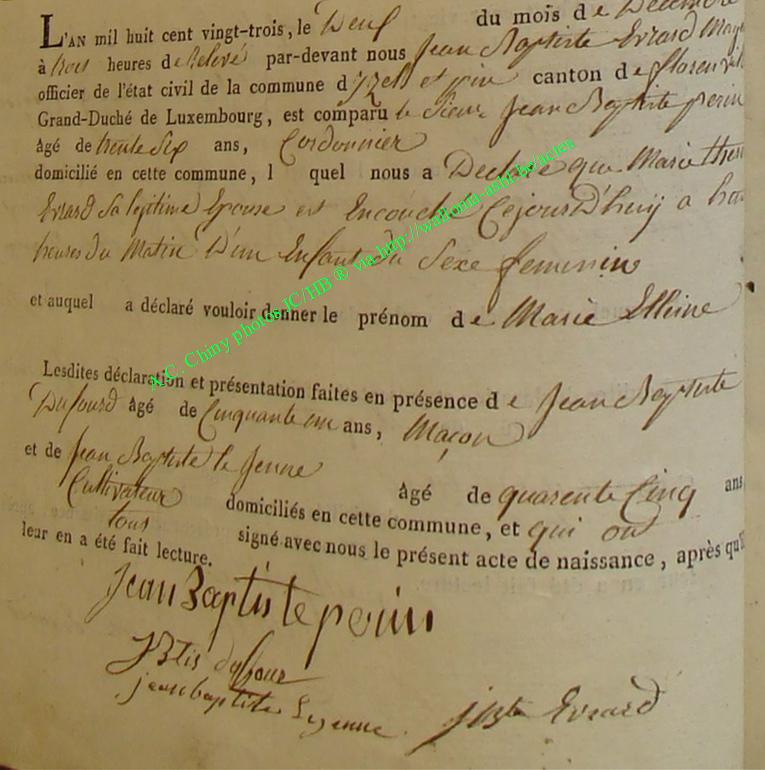 L'AN mil huit cent vingt-trois, le Deuf du mois de Decembre
à trois heures de Relevé par-devant nous Jean Baptiste Evrard
officier de l'état civil de la commune d'Izel et pin canton de floren
Grand-Duché de Luxembourg, est comparu le Sieur Jean Baptiste perin
âgé de trente Six ans, Cordonnier
domicilié en cette commune, l quel nous a Declaré que Marie
Evrard Sa legitime Epouse est Encouché Cejourd'huy a
heures du Matin D'un Enfant du Sexe feminin
et auquel a déclaré vouloir donner le prénom de Marie
Lesdites déclaration et présentation faites en présence de Jean Baptiste
Dufourd âgé de Cinquante ans, Maçon
et de Jean Baptiste le Jenne
Cultivateur âgé de quarente Cinq ans
domiciliés en cette commune, et qui ont
tous signé avec nous le présent acte de naissance, après qu'il
leur en a été fait lecture.
Jean Baptiste perin
JBtis dufour
jean baptiste Legenne jBte Evrard
A.C. Chiny photos JC/HB ® via http://wallonia-asbl.be/actes